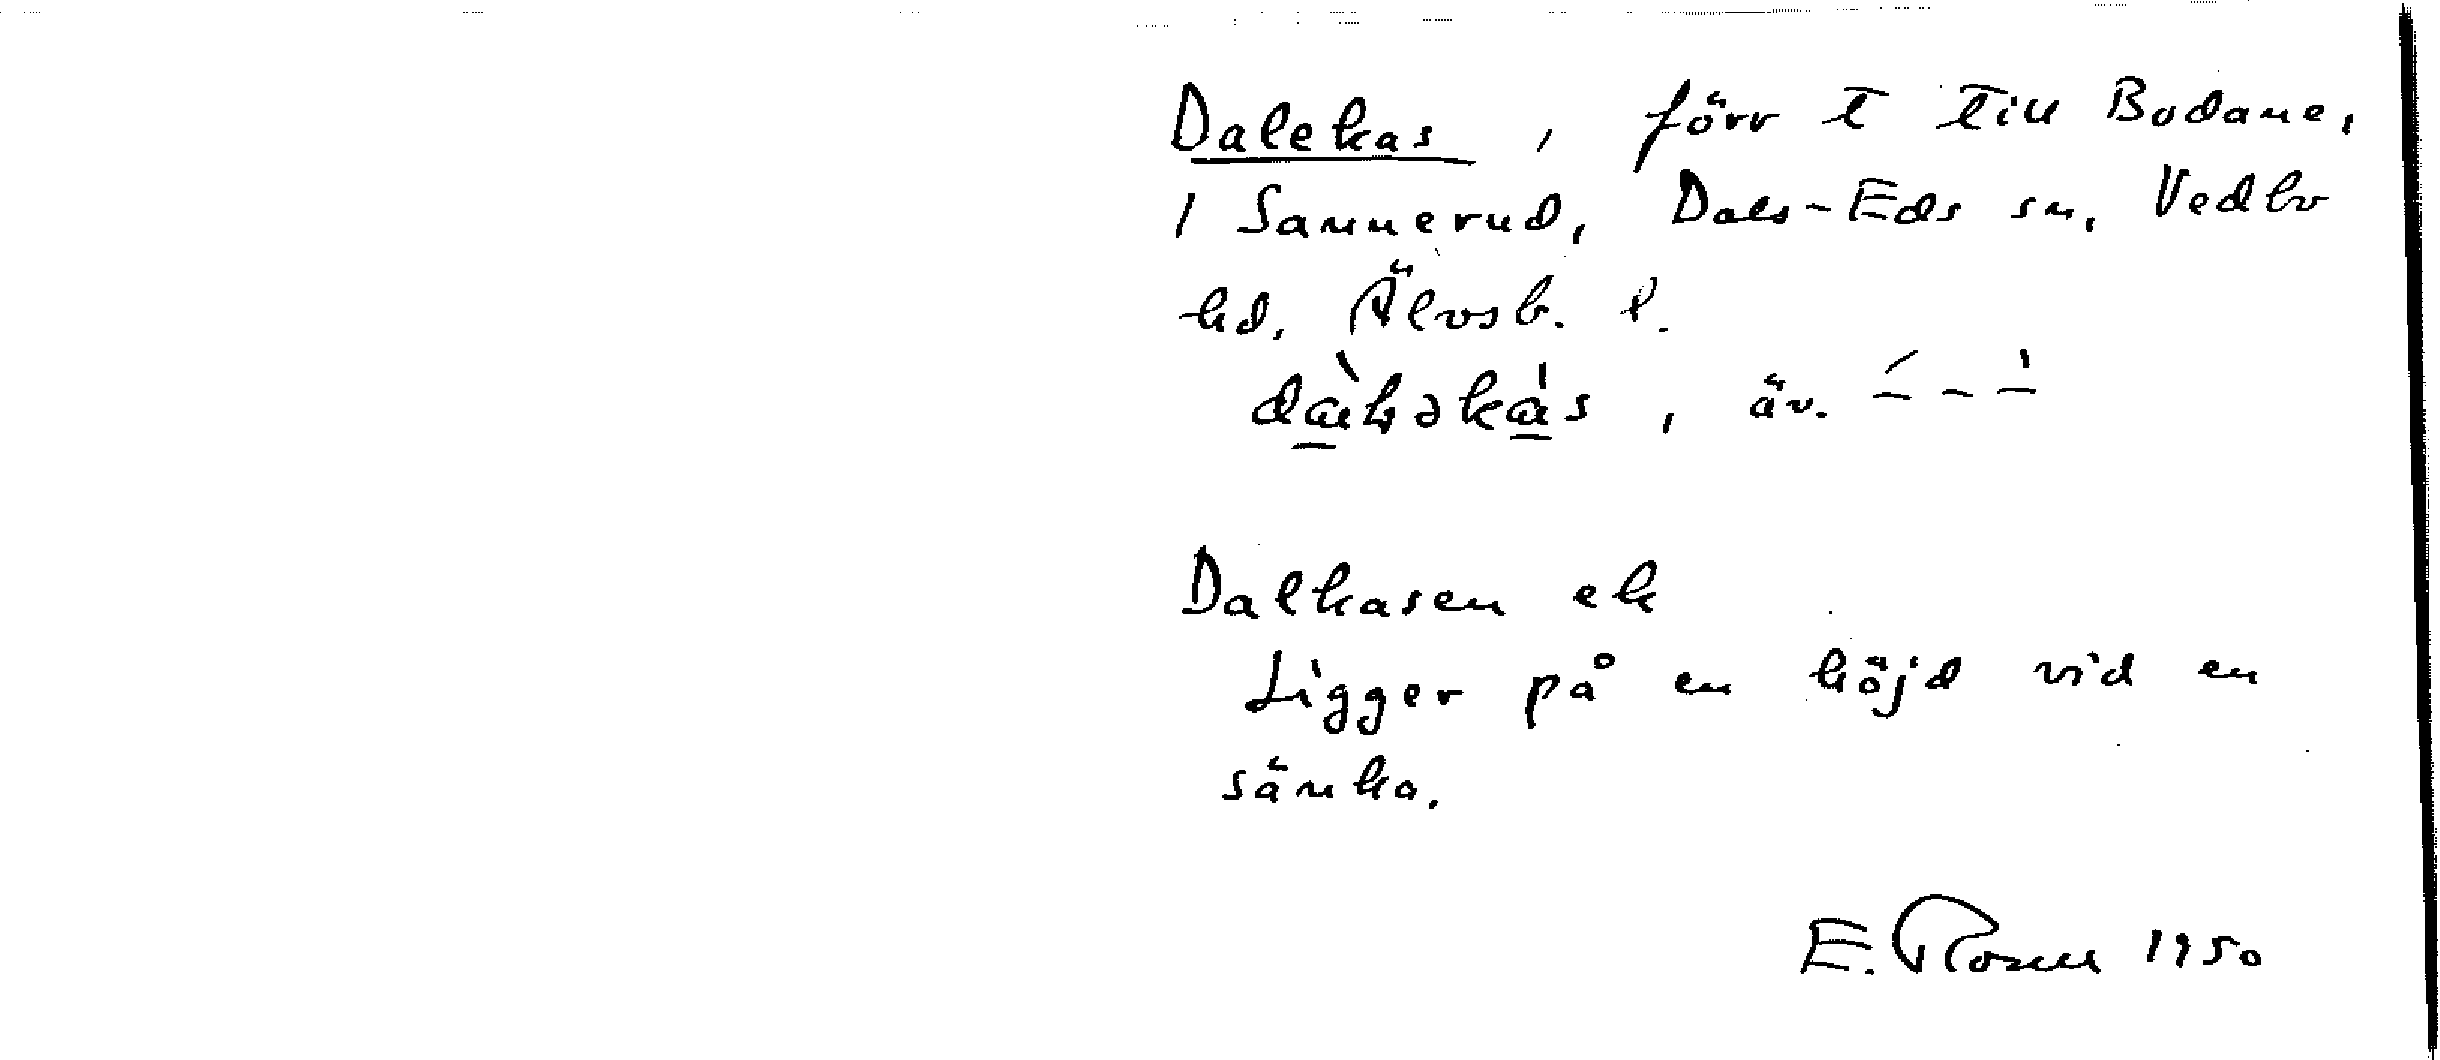 Dalekas, förr t till Bodane,
1 Sannerud, Dals-Eds sn, Vedbo
hd, Älvsb. l.
dàləkás, äv. ́- - -̍
Dalkasen ek
Ligger på en höjd vid en
sänka.
E. Rosell 1950